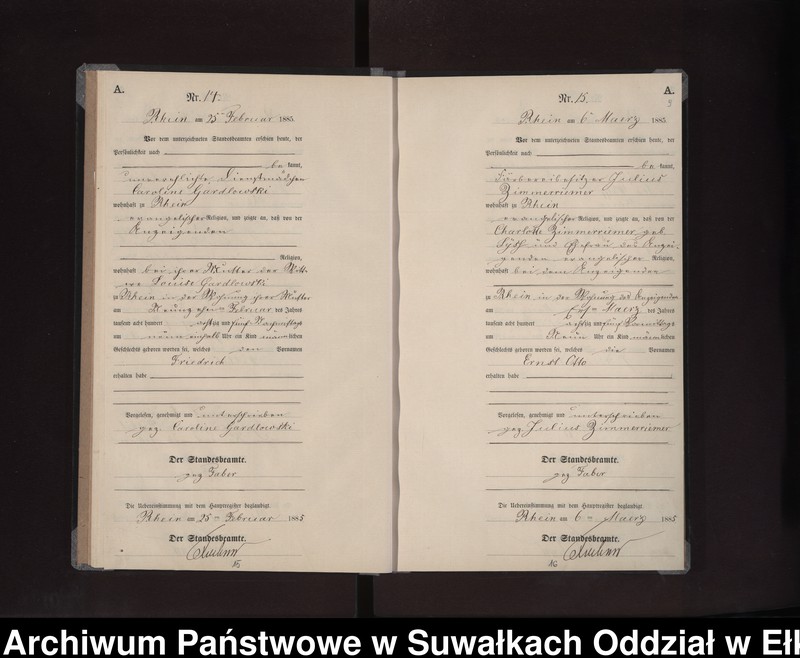 A.
Nr. 14.
Rhein am 25ten Februar 1885.
Vor dem unterzeichneten Standesbeamten erschien heute, der
Persönlichkeit nach
be kannt,
unverehelichte Dienstmädchen
Caroline Gardlowski
wohnhaft zu Rhein
evangelischer Religion, und zeigte an, daß von der
Anzeigenden
Religion,
wohnhaft bei ihrer Mutter der Witt-
we Louise Gardlowski
zu Rhein in der Wohnung ihrer Mutter
am Februar des Jahres
tausend acht hundert achtzig und fünf Nachmittags
um neun einhalb Uhr ein Kind männlichen
Geschlechts geboren worden sei, welches den Vornamen
Friedrich
erhalten habe
Vorgelesen, genehmigt und unterschrieben
gez. Caroline Gardlowski
Der Standesbeamte.
gez. Faber
Die Uebereinstimmung mit dem Hauptregister beglaubigt
Rhein am 25ten Februar 1885
Der Standesbeamte.
15
A.
Nr. 15.
Rhein am 6ten Maerz 1885
Vor dem unterzeichneten Standesbeamten erschien heute, der
Persönlichkeit nach
be kannt,
Färbereibesitzer Julius
Zimmerriemer
wohnhaft zu Rhein
evangelischer Religion, und zeigte an, daß von der
Charlotte Zimmerriemer geb.
und Ehefrau des Anzei-
genden evangelischer Religion,
wohnhaft bei dem Anzeigenden
zu Rhein in der Wohnung des Anzeigenden
am Maerz des Jahres
tausend acht hundert achtzig und fünf Vormittags
um Neun Uhr ein Kind männlichen
Geschlechts geboren worden sei, welches die Vornamen
Ernst Otto
erhalten habe
Vorgelesen, genehmigt und unterschrieben
gez. Julius Zimmerriemer
Der Standesbeamte.
gez. Faber
Die Uebereinstimmung mit dem Hauptregister beglaubigt
Rhein am 6ten Maerz 1885
Der Standesbeamte.
16
Archiwum Państwowe w Suwałkach Oddział w Ełk